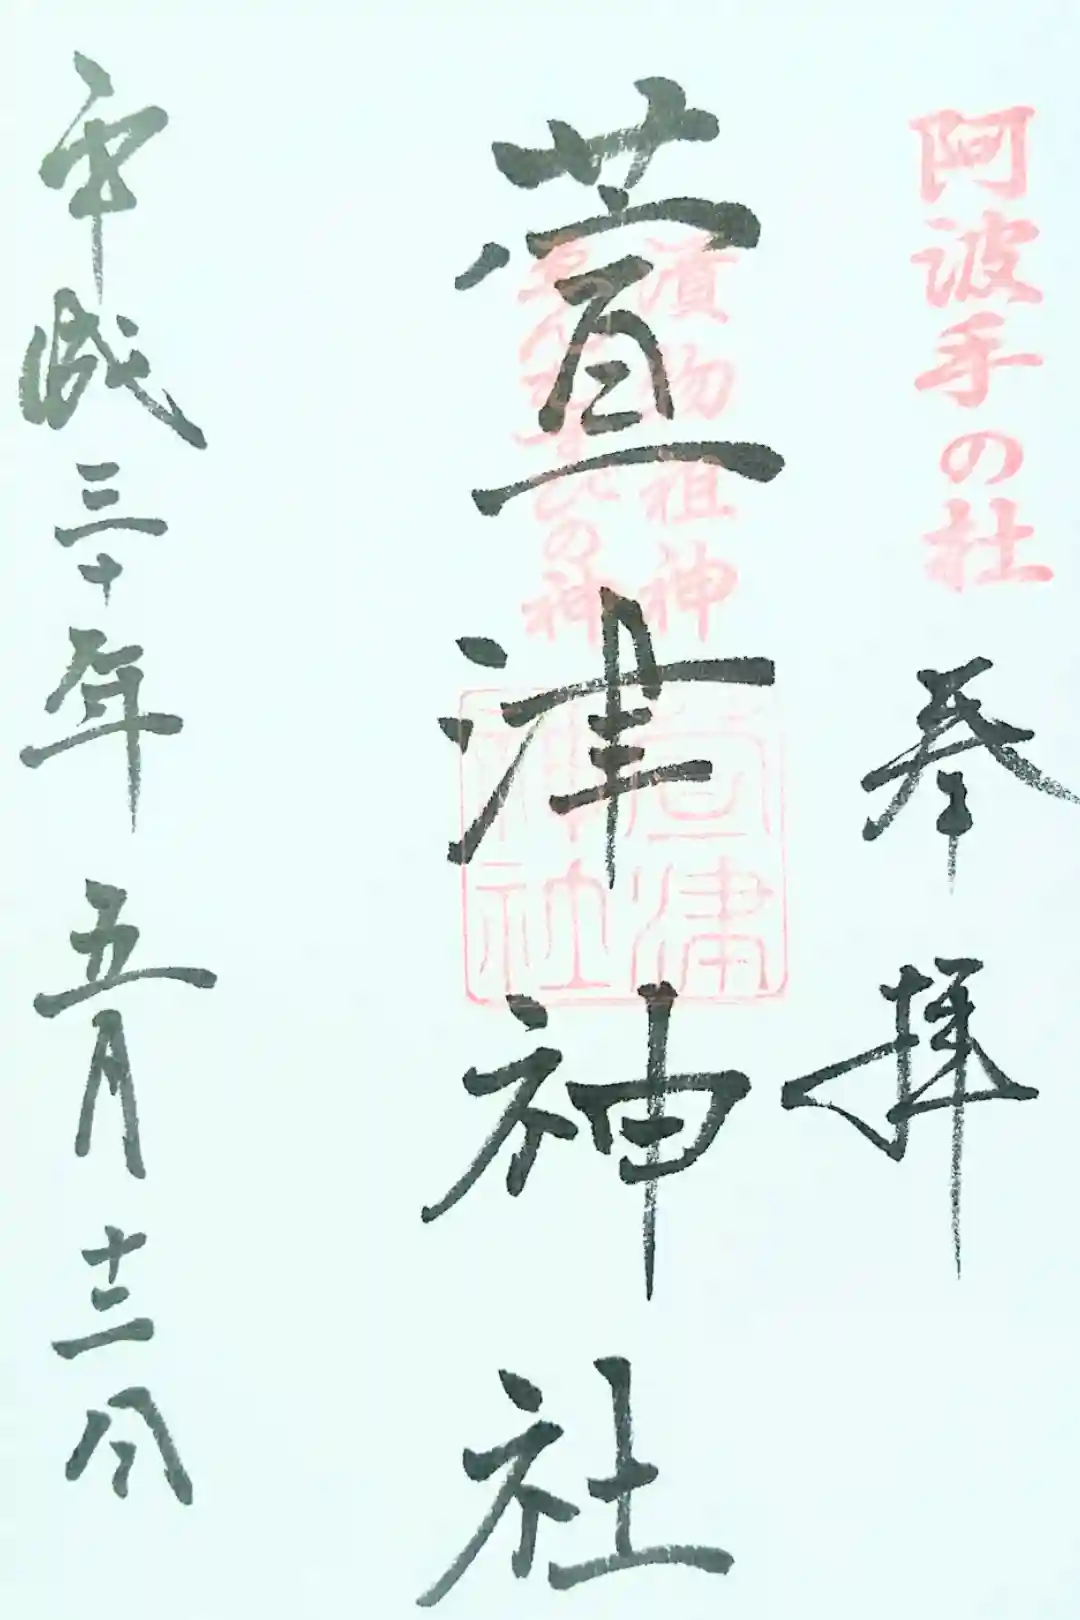 阿波手の杜
奉拝
萱津神社
漬物祖神
むすびの神
萱津神社
平成三十年五月十二日